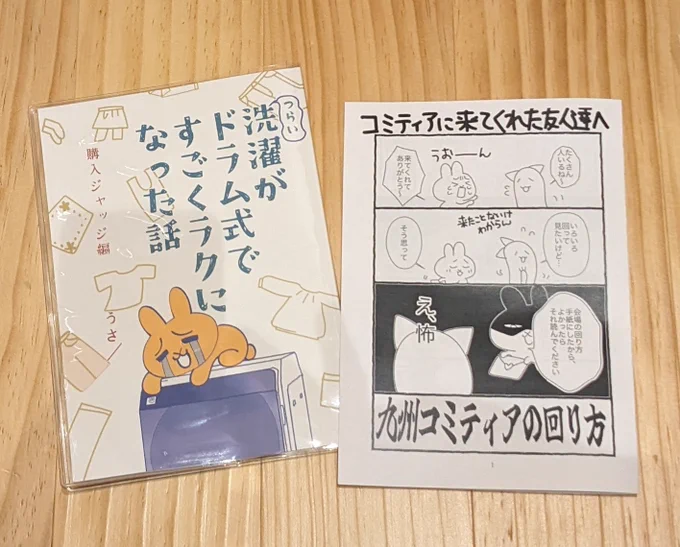 つらい
洗濯が
ドラム式で
すごくラクに
なった話
購入ジャッジ編
うさ
コミティアに来てくれた友人達へ
たくさん
人いるね〜
うおーーん
来てくれて
ありがとう〜
いろいろ
回って
見たいけど…
来たことないけ
わからん
そう思って
会場の回り方
手紙にしたから、
よかったら
それ読んでください
え、怖
九州コミティアの回り方
1